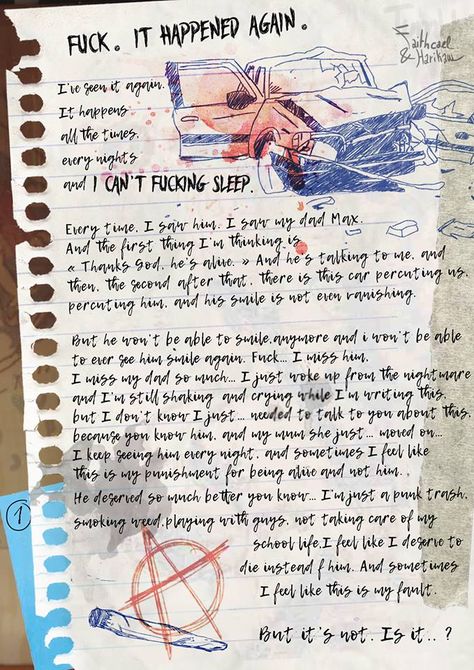 FUCK. IT HAPPENED AGAIN.
Faithcael
& Harihaw
I've seen it again.
It happens
all the times.
every nights
and I CAN'T FUCKING SLEEP.
Every time, I saw him. I saw my dad Max.
And the first thing I'm thinking is
« Thanks God, he's alive. » And he's talking to me, and
then, the second after that, there is this car percuting us,
percuting him, and his smile is not even vanishing.
But he won't be able to smile anymore and i won't be able
to ever see him smile again. Fuck... I miss him.
I miss my dad so much... I just woke up from the nightmare
and I'm still shaking and crying while I'm writing this,
but I don't know I just... needed to talk to you about this,
because you know him, and my mum she just... moved on...
I keep seeing him every night, and sometimes I feel like
this is my punishment for being alive and not him..
He deserved so much better you know... I'm just a punk trash,
smoking weed,playing with guys, not taking care of my
school life,I feel like I deserve to
die instead f him. And sometimes
I feel like this is my fault.
But it's not. Is it..?
1